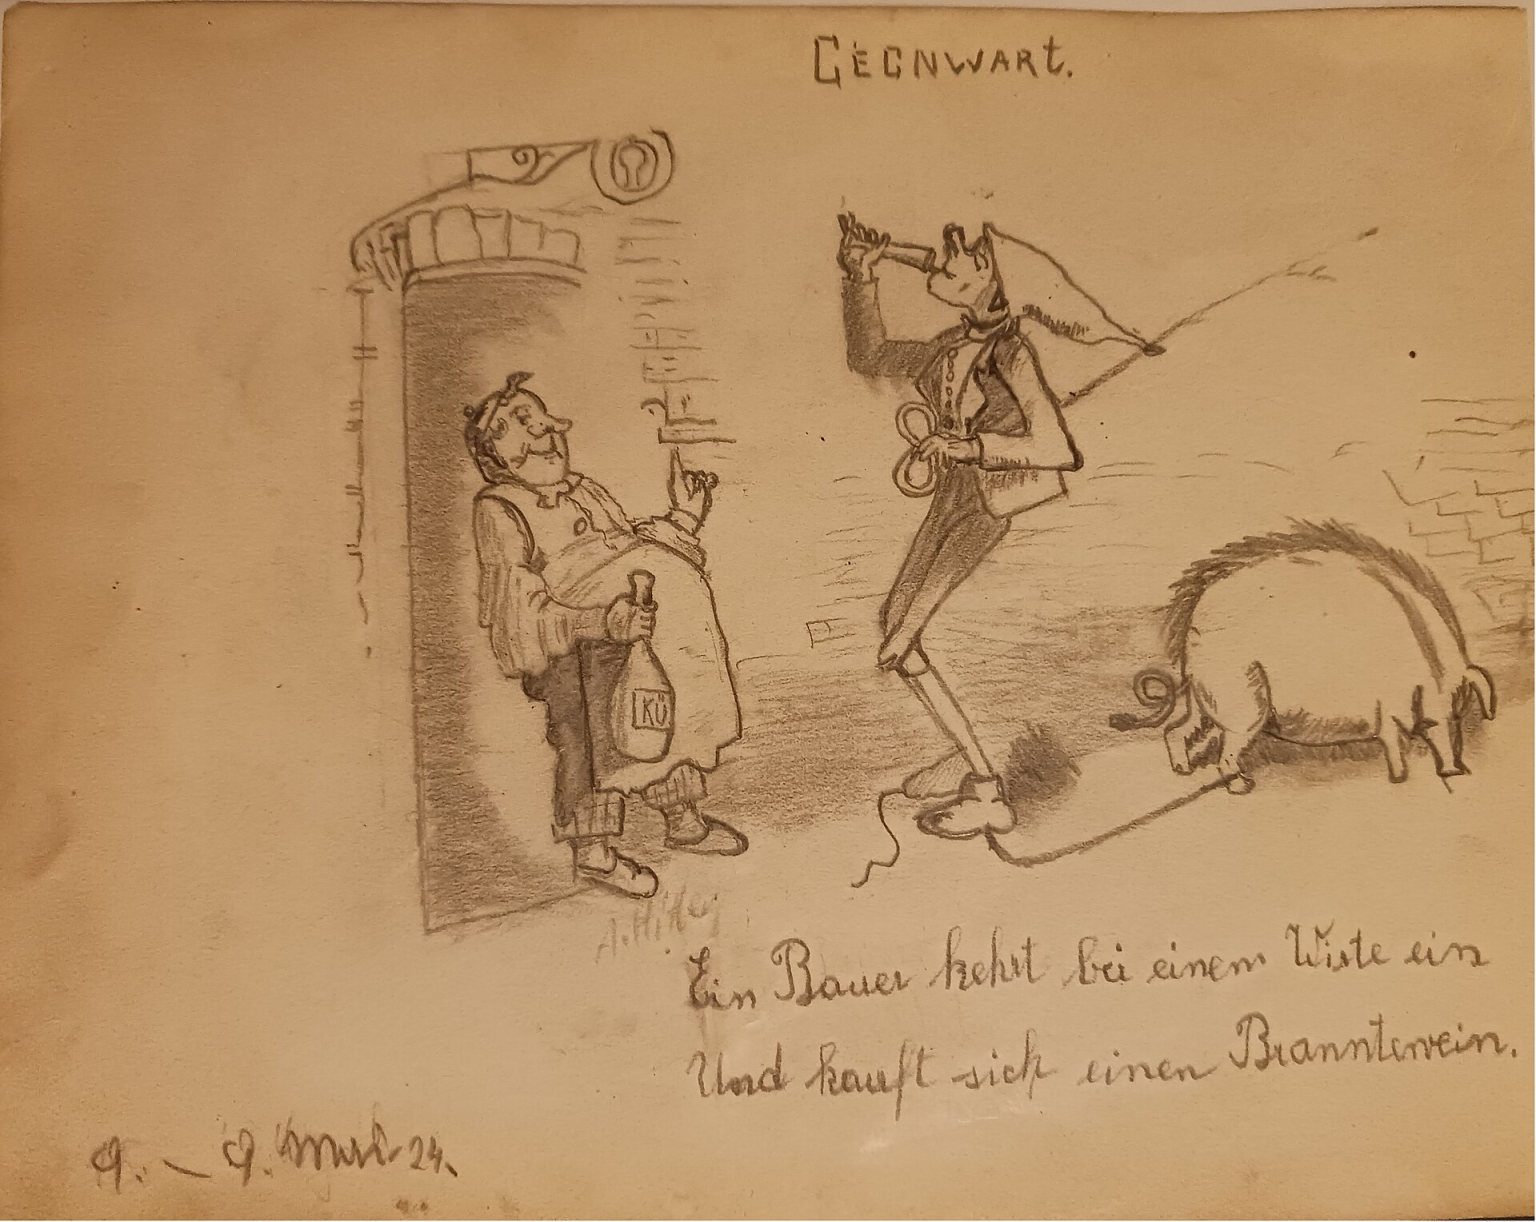 GEGNWART.
KÜ
A. Hitler
Ein Bauer kehrt bei einem Wirte ein
Und kauft sich einen Branntewein.
24.